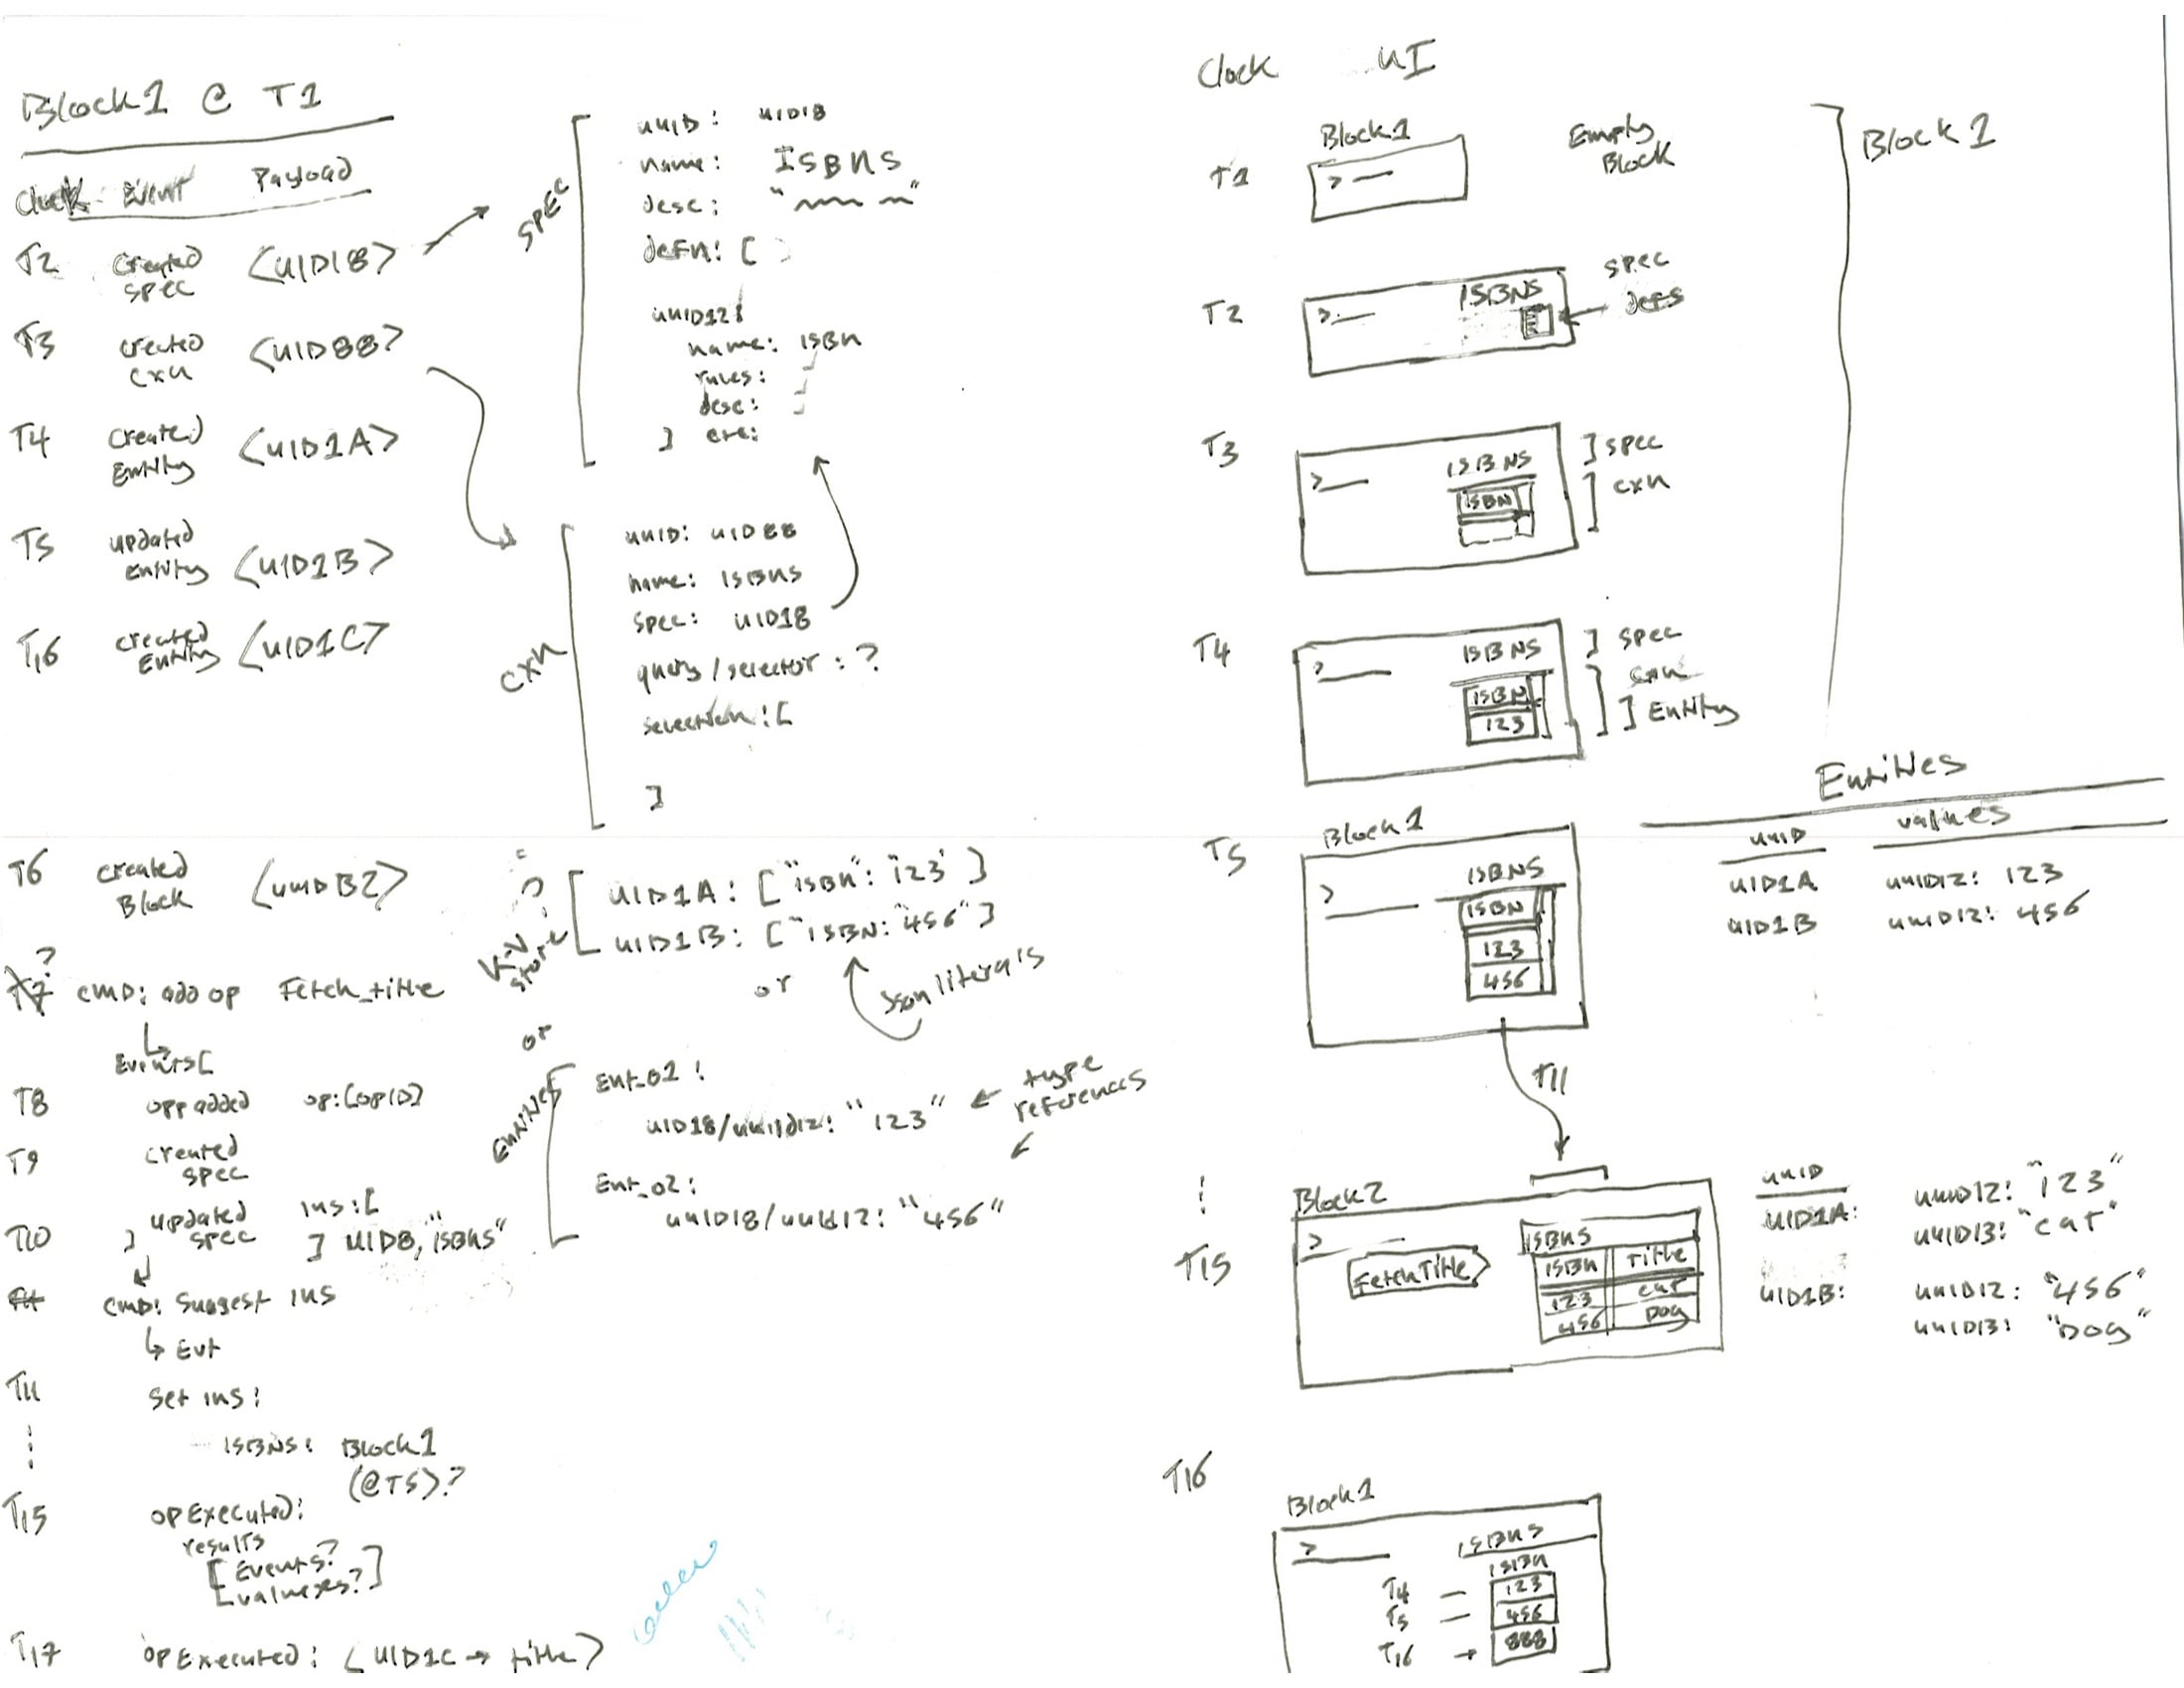 Block1 @ T1
Clock Event Payload
T2 created spec <UID18>
T3 created cxn <UID88>
T4 created Entity <UID1A>
T5 updated entity <UID1B>
T16 created Entity <UID1C>
SPEC
uuid: UID18
name: ISBNS
desc: "
defn: [
uuid12:
name: ISBN
rules:
desc:
] etc:
cxn
uuid: UID88
name: ISBNS
spec: UID18
query/selector: ?
selection: [
]
T6 created Block <uuidB2>
?
T7 cmd: add op Fetch_title
Events[
T8 opp added op:[opID]
T9 created spec
T10 ] updated spec ins:[
] UID8, "ISBNS"
T11 cmd: suggest ins
Evt
T11 set ins:
ISBNS: Block1
(@T5)?
T15 opExecuted:
results
[Events?
values?]
T17 opExecuted: <UID1C → title>
K-V store?
UID1A: ["isbn": "123"]
UID1B: ["ISBN: "456"]
or
Json literals
or
Entities
Ent_01:
UID18/uuid12: "123"
← type references
Ent_02:
uuID18/uuid12: "456"
Clock UI
T1 Block1
>
Empty Block
Block 1
T2 >
ISBNS
spec
defs
T3 >
ISBNS
ISBN
] spec
] cxn
T4 >
ISBNS
ISBN
123
] spec
cxn
] Entity
T5 Block1
>
ISBNS
ISBN
123
456
Entities
uuid values
UID1A uuID12: 123
UID1B uuID12: 456
T11
T15 Block2
>
FetchTitle
ISBNS
ISBN Title
123 cat
456 Dog
uuid
UID1A: uuID12: "123"
uuID13: "cat"
UID1B: uuID12: "456"
uuID13: "Dog"
T16
Block1
>
ISBNS
ISBN
T4 – 123
T5 – 456
T16 → 888